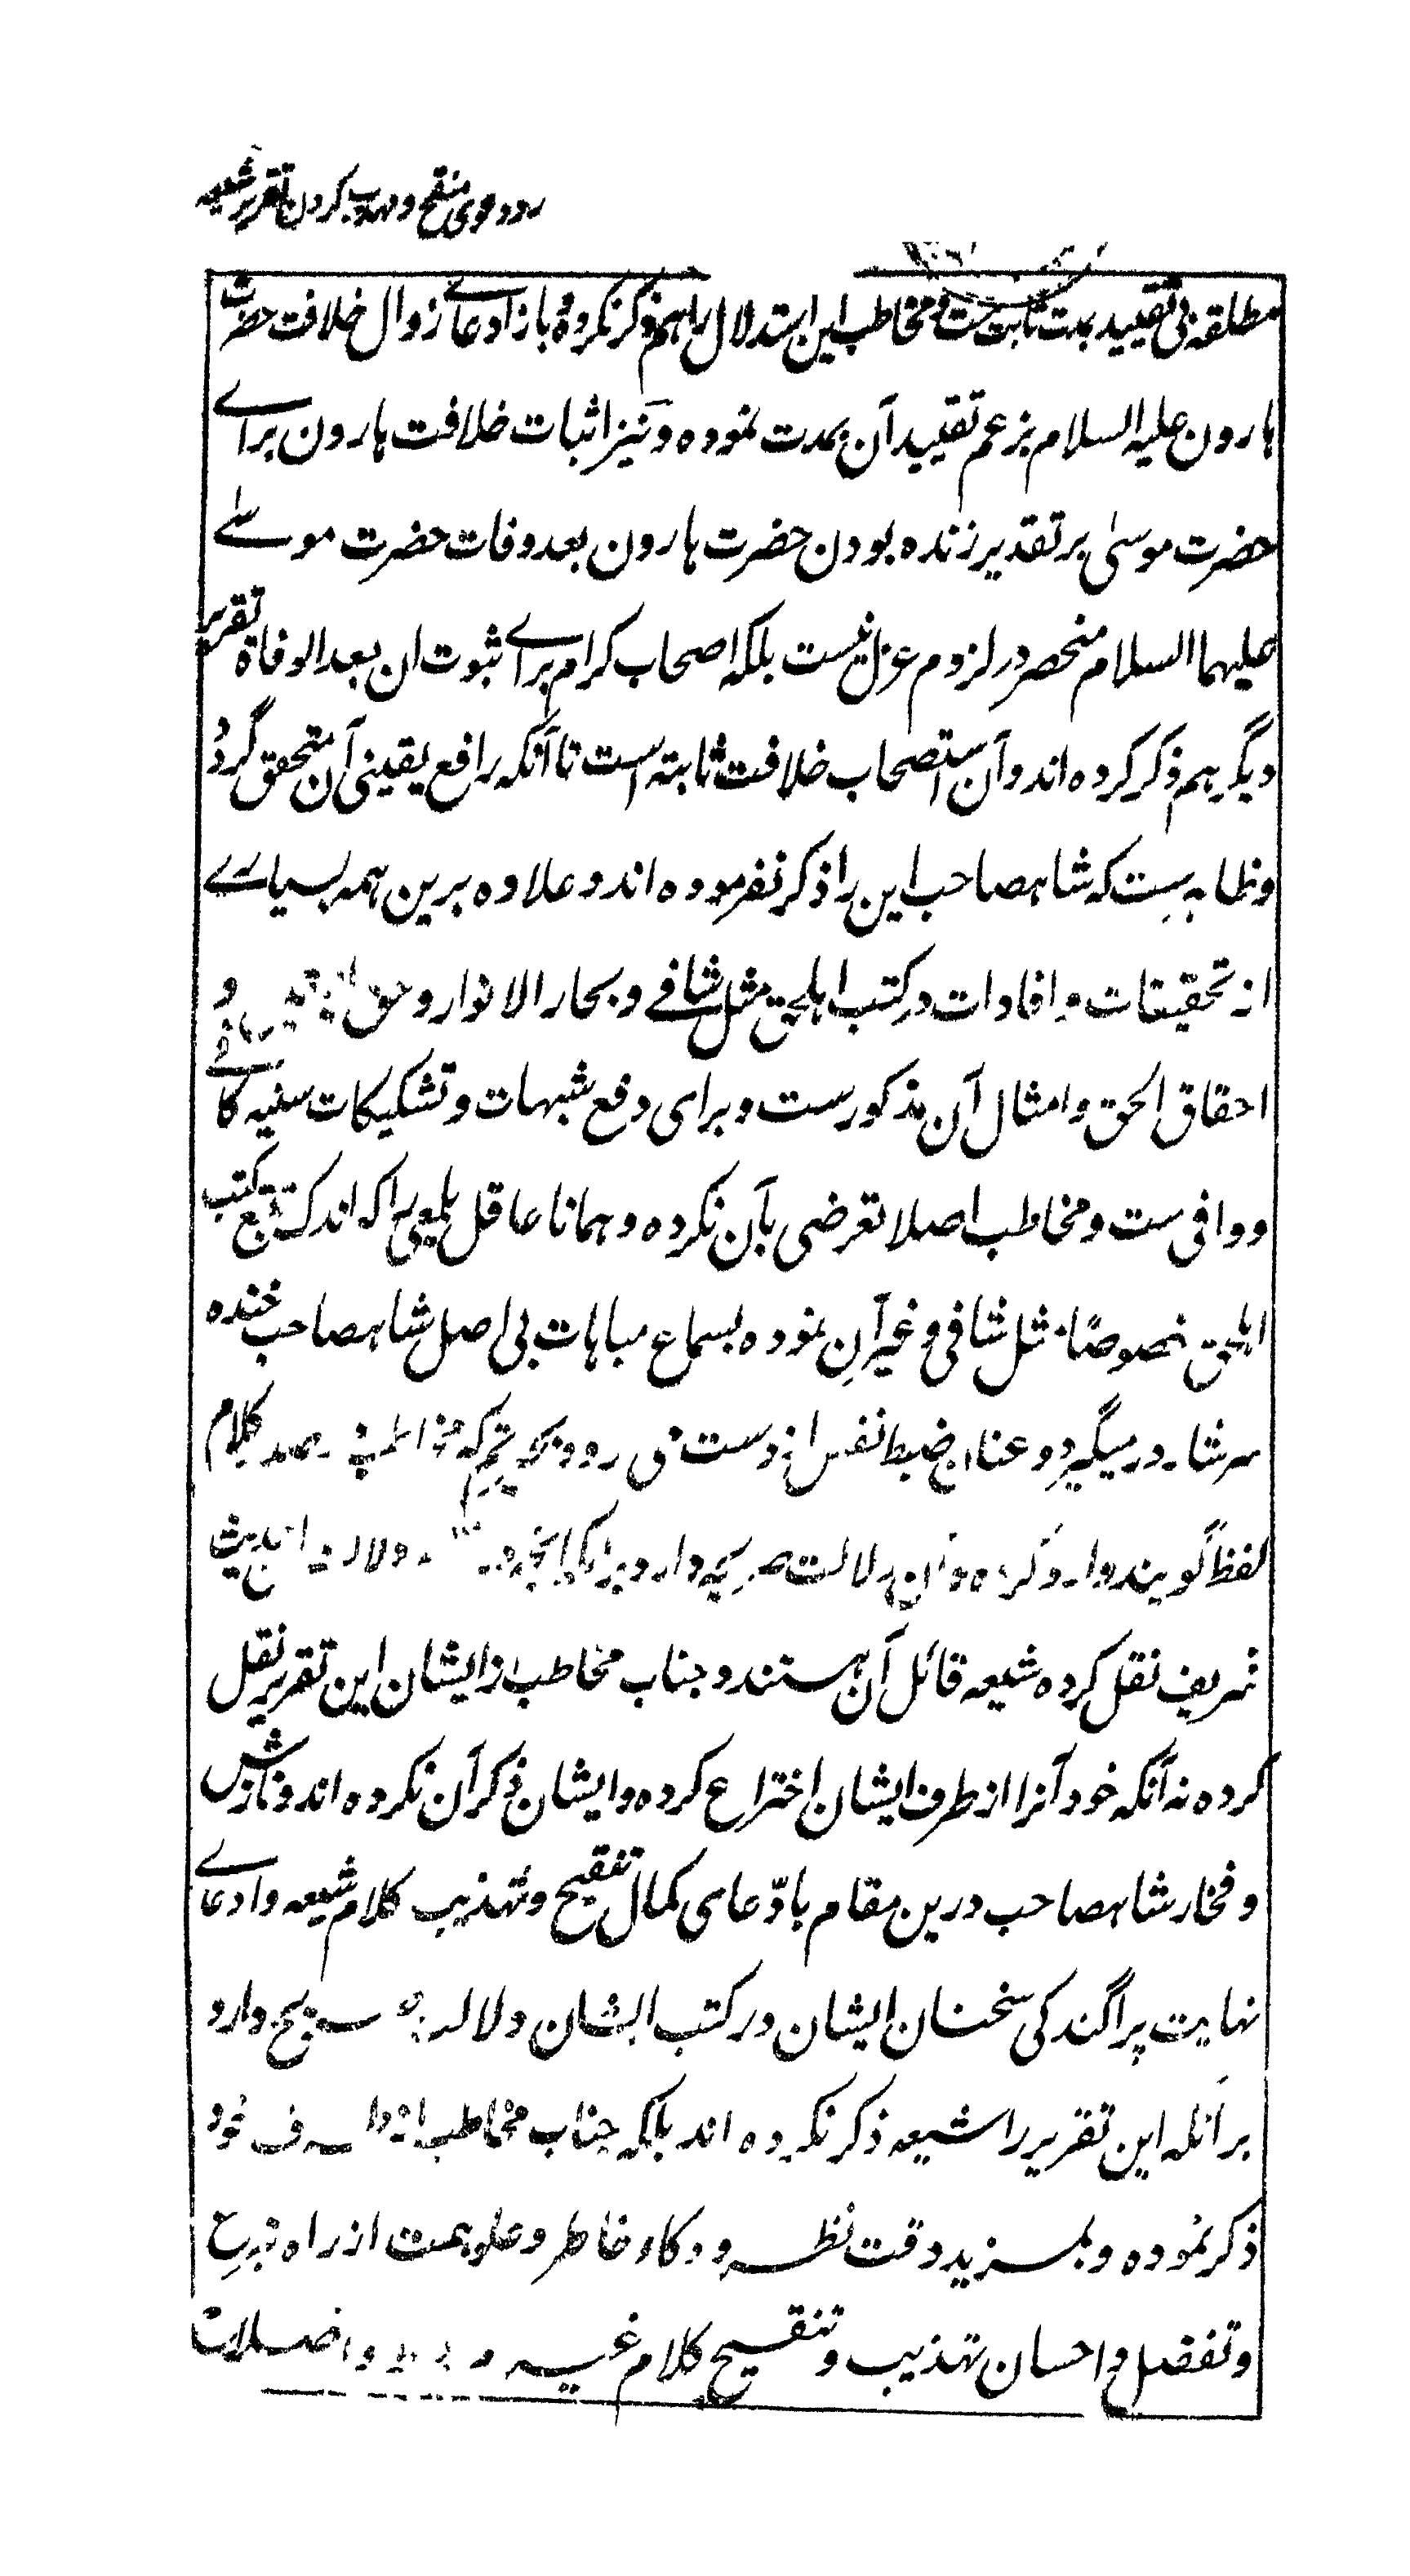 رد دعوی منقح و مهذب کردن تقریر شیعه
مطلقه بی تقیید بمدت ثابت ست و مخاطب این استدلال را هم ذکر نکرده باز ادعاے زوال خلافت حضرت
هارون علیه السلام بزعم تقیید آن بمدت نموده و نیز اثبات خلافت هارون براے
حضرت موسیٰ بر تقدیر زنده بودن حضرت هارون بعد وفات حضرت موسے
علیهما السلام منحصر در لزوم عزل نیست بلکه اصحاب کرام براے ثبوت ان بعد الوفاة تقریر
دیگر هم ذکر کرده اند و آن استصحاب خلافت ثابته است تا آنکه رافع یقینی آن متحقق گردد
و ظاهرست که شاهصاحب این را ذکر نفرموده اند و علاوه برین همه بسیارے
از تحقیقات و افادات در کتب اهلحق مثل شافے و بحار الانوار و حق و
احقاق الحق و امثال آن مذکورست و برای دفع شبهات و تشکیکات سنیه کافے
و وافی ست و مخاطب اصلا تعرضی بآن نکرده و همانا عاقل یلمعی را که اندک تتبع کتب
اهلحق خصوصًا مثل شافی و غیر آن نموده بسماع مباهات بی اصل شاهصاحب خنده
سرشار در میگیرد و عنان ضبط نفس از دست می رود که کلام
لفظ گویند وارد کرده و آن دلالت صریحه دارد برانکه
شریف نقل کرده شیعه قائل آن هستند و جناب مخاطب از ایشان این تقریر نقل
کرده نه آنکه خود آنرا از طرف ایشان اختراع کرده و ایشان ذکر آن نکرده اند و نازش
و فخار شاهصاحب درین مقام بادّعای کمال تنقیح و تهذیب کلام شیعه و ادعاے
نهایت پراگندگی سخنان ایشان در کتب ایشان دلالت صریح دارد
برآنکه این تقریر را شیعه ذکر نکرده اند بلکه جناب مخاطب از طرف خود
ذکر نموده و بمزید دقت نظر و ذکاء خاطر و علو همت از راه تبرع
و تفضل و احسان تهذیب و تنقیح کلام غیر و اصلاح